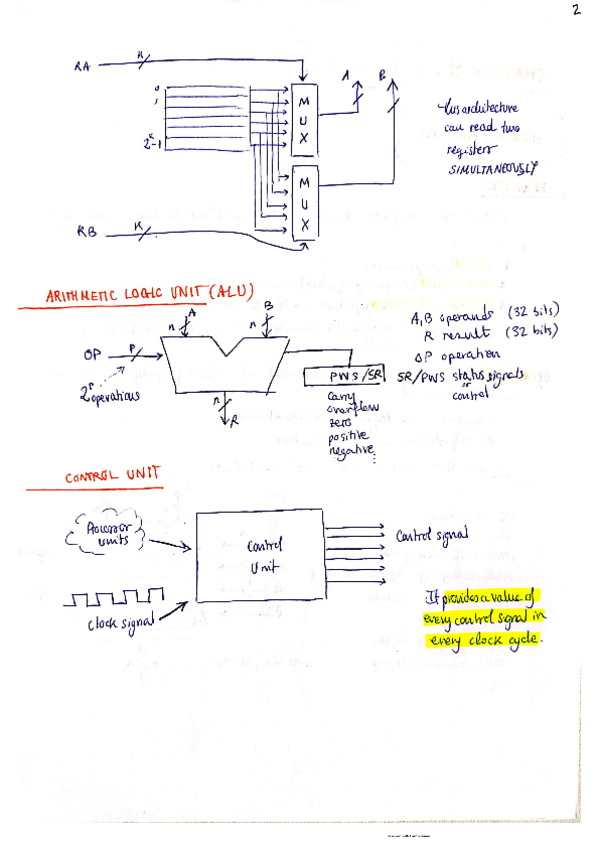 2
RA
K
0
1
2^K-1
M
U
X
A
B
this architecture
can read two
registers
SIMULTANEOUSLY
M
U
X
RB
K
ARITHMETIC LOGIC UNIT (ALU)
A
B
n
n
OP
P
2^P operations
n
R
PWS/SR
carry
overflow
zero
positive
negative
⋮
A,B operands (32 bits)
R result (32 bits)
OP operation
SR/PWS status signals
or
control
CONTROL UNIT
Processor
units
Control
Unit
Control signal
clock signal
It provides a value of
every control signal in
every clock cycle.